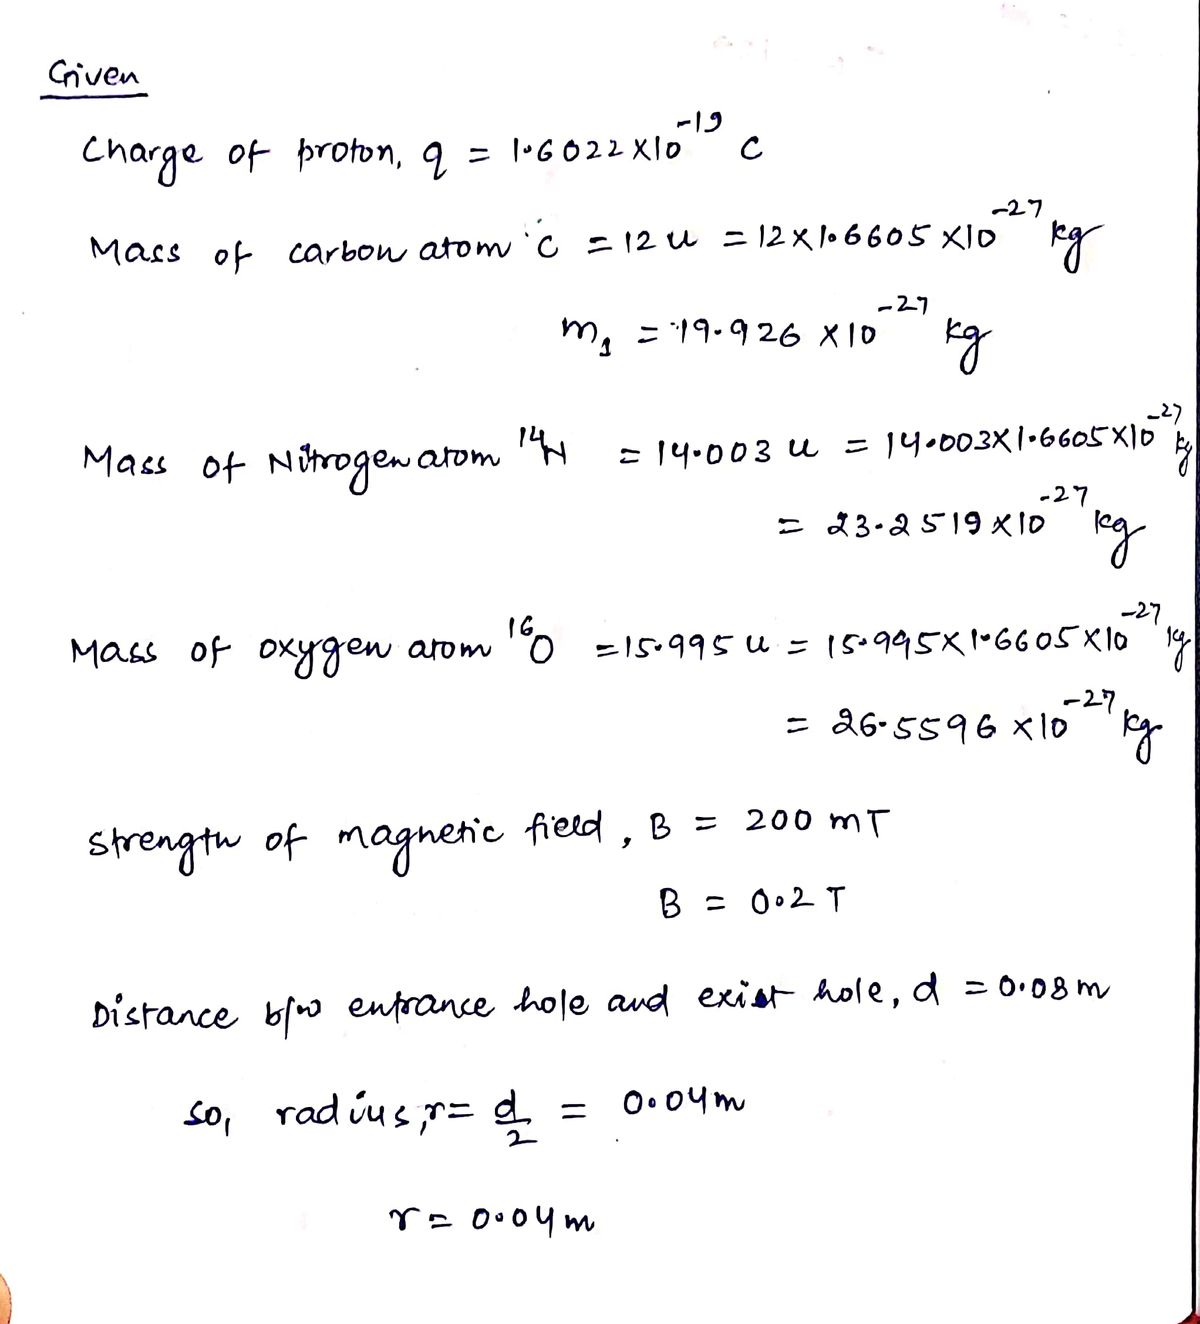 Given
Charge of proton, q = 1.6022 X10⁻¹⁹ C
Mass of carbon atom C = 12 u = 12 X 1.6605 X10⁻²⁷ kg
m₁ = 19.926 X10⁻²⁷ kg
Mass of Nitrogen atom ¹⁴N = 14.003 u = 14.003X1.6605X10⁻²⁷ kg
= 23.2519 X10⁻²⁷ kg
Mass of oxygen atom ¹⁶O = 15.995 u = 15.995X1.6605X10⁻²⁷ kg
= 26.5596 X10⁻²⁷ kg
strength of magnetic field, B = 200 mT
B = 0.2 T
Distance b/w entrance hole and exist hole, d = 0.08 m
so, radius, r = d/2 = 0.04m
r = 0.04 m